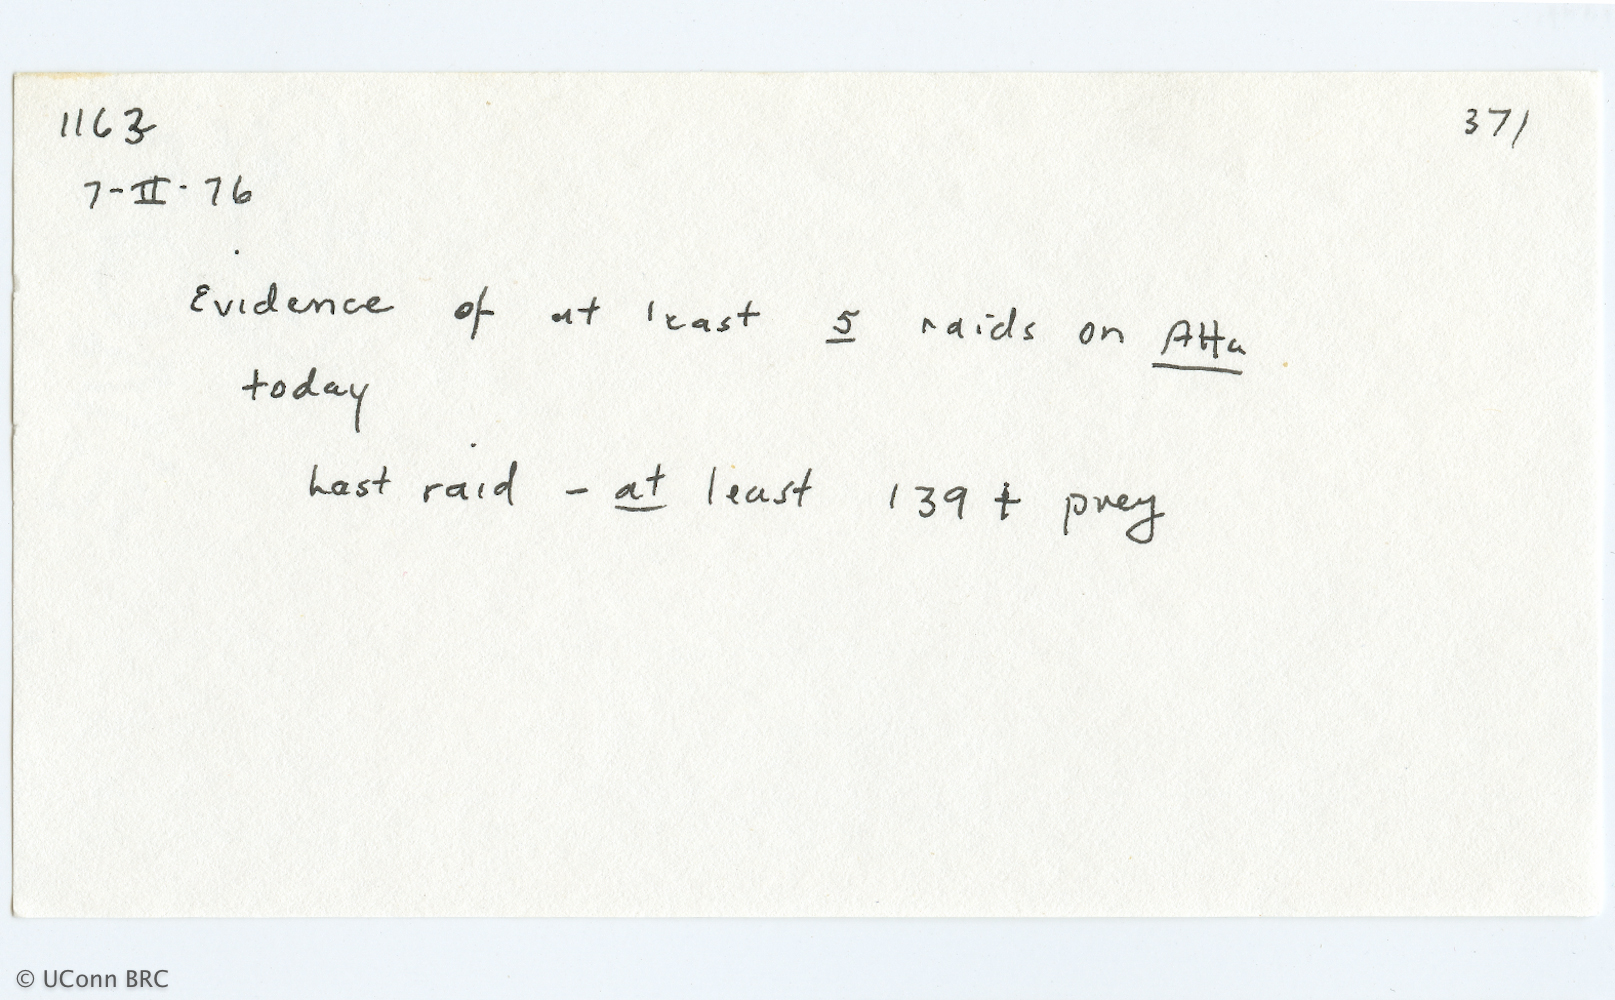 1163 371
7-II-76
Evidence of at least 5 raids on Atta
today
Last raid - at least 139 + prey
© UConn BRC